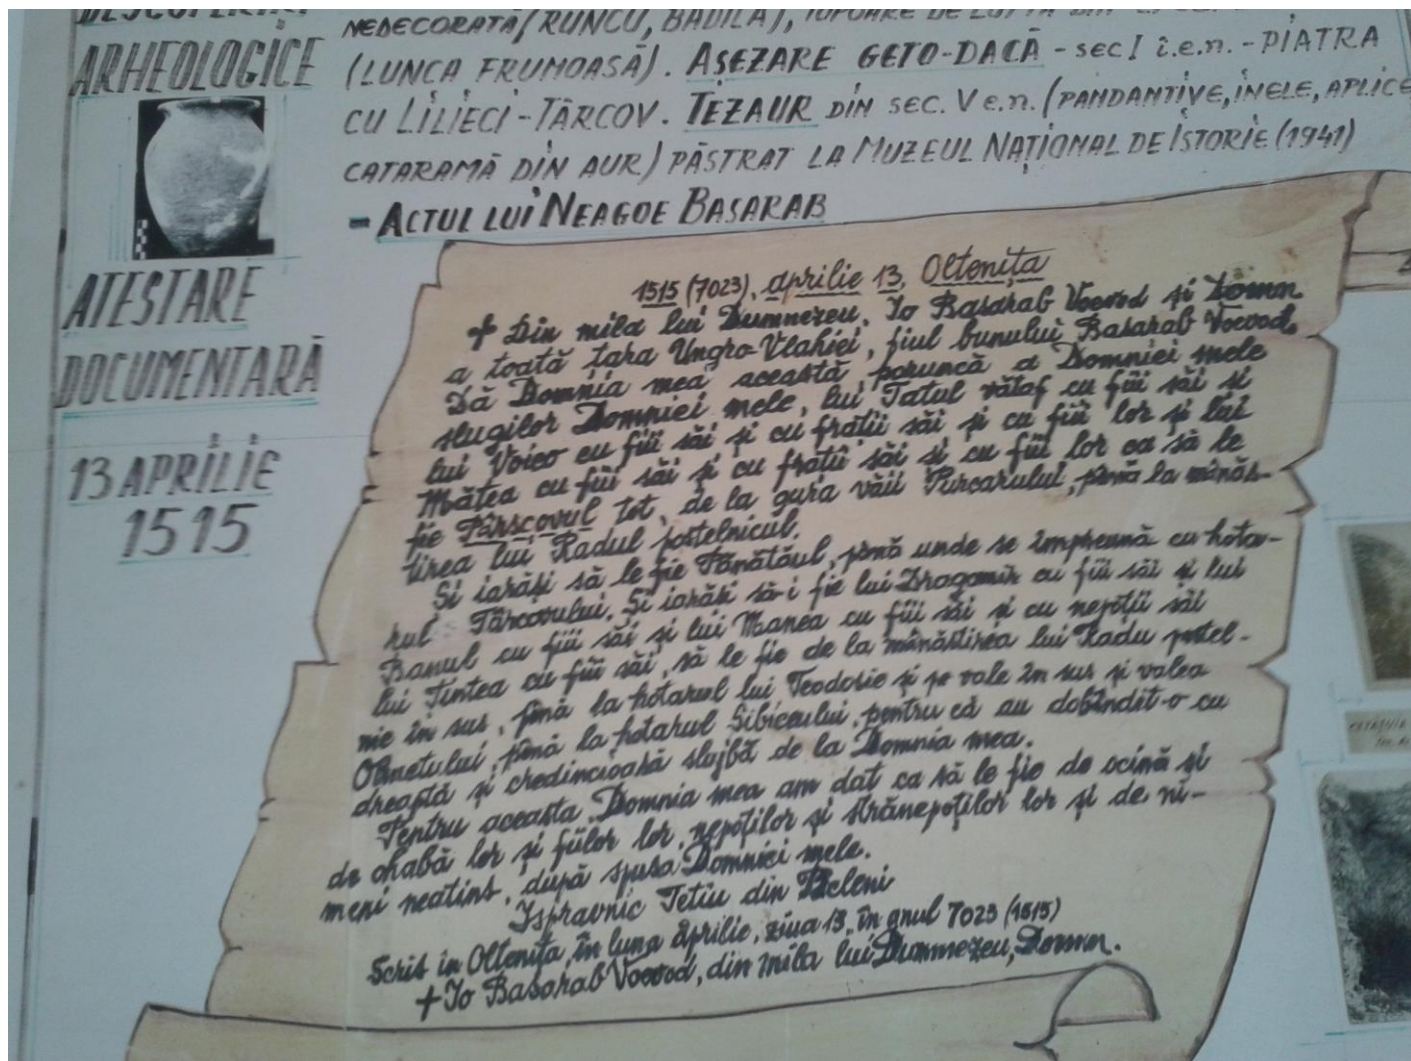 ARHEOLOGICE
NEDECORATĂ (RUNCU, BĂDILA), TOPOARE DE LUPTĂ DIN
(LUNCA FRUMOASĂ). AȘEZARE GETO-DACĂ - sec I î.e.n. - PIATRA
CU LILIECI - TÂRCOV. TEZAUR DIN sec. V e.n. (PANDANTIVE, INELE, APLICE
CATARAMĂ DIN AUR) PĂSTRAT LA MUZEUL NAȚIONAL DE ISTORIE (1941)
- ACTUL LUI NEAGOE BASARAB
ATESTARE
DOCUMENTARĂ
13 APRILIE
1515
1515 (7023), aprilie 13, Oltenița
+ Din mila lui Dumnezeu, Io Basarab Voevod și Domn
a toată țara Ungro-Vlahiei, fiul bunului Basarab Voevod.
Dă Domnia mea această poruncă a Domniei mele
slugilor Domniei mele, lui Tatul vătaf cu fiii săi și
lui Voico cu fiii săi și cu frații săi și cu fiii lor și lui
Mătea cu fiii săi și cu frații săi și cu fiii lor ca să le
fie Pârscovul tot, de la gura văii Purcarului, pînă la mînăs-
tirea lui Radul postelnicul.
Și iarăși să le fie Tănătăul, pînă unde se împreună cu hota-
rul Târcovului. Și iarăși să-i fie lui Dragomir cu fiii săi și lui
Banul cu fiii săi și lui Manea cu fiii săi și cu nepoții săi
lui Țintea cu fiii săi, să le fie de la mînăstirea lui Radu postel-
nic în sus, pînă la hotarul lui Teodosie și pe vale în sus și valea
Olmetului, pînă la hotarul Sibiceului, pentru că au dobîndit-o cu
dreaptă și credincioasă slujbă de la Domnia mea.
Pentru aceasta, Domnia mea am dat ca să le fie de ocină și
de ohabă lor și fiilor lor, nepoților și strănepoților lor și de ni-
meni neatins, după spusa Domniei mele.
Ispravnic Tetiu din Beleni
Scris în Oltenița, în luna Aprilie, ziua 13, în anul 7023 (1515)
+ Io Basarab Voevod, din mila lui Dumnezeu, Domn.